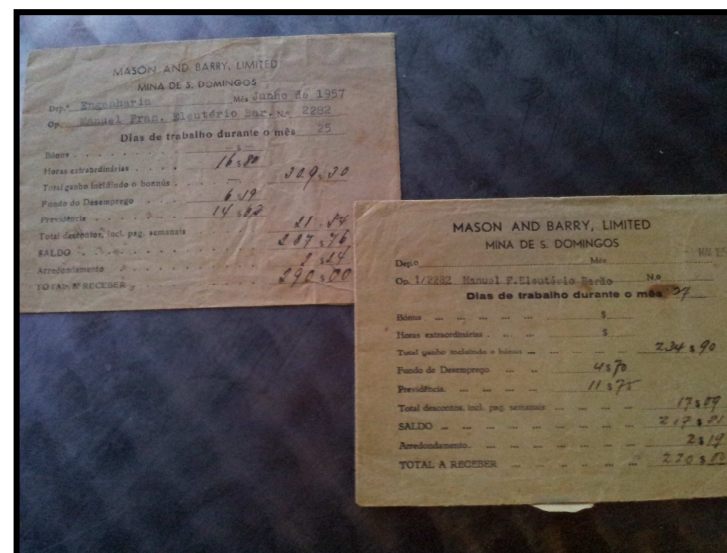 MASON AND BARRY, LIMITED
MINA DE S. DOMINGOS
Dep.º Engenharia Mês Junho de 1957
Op. Manuel Fran. Eleutério Bar. N.º 2282
Dias de trabalho durante o mês 25
Bónus
Horas extraordinárias 16$80
Total ganho incluindo o bonus 309$30
Fundo do Desemprego 6$19
Previdência
Total descontos, incl. pag. semanais 21$54
SALDO 287$76
Arredondamento 2$24
TOTAL A RECEBER 290$00
MASON AND BARRY, LIMITED
MINA DE S. DOMINGOS
Dep.o Mês
Op. 1/2282 Manuel F. Eleutério Barão N.o
Dias de trabalho durante o mês 27
Bónus $
Horas extraordinárias $
Total ganho incluindo o bónus 234$90
Fundo de Desemprego 4$70
Previdência. 11$75
Total descontos, incl. pag. semanais
SALDO 217$81
Arredondamento. 2$19
TOTAL A RECEBER 220$00